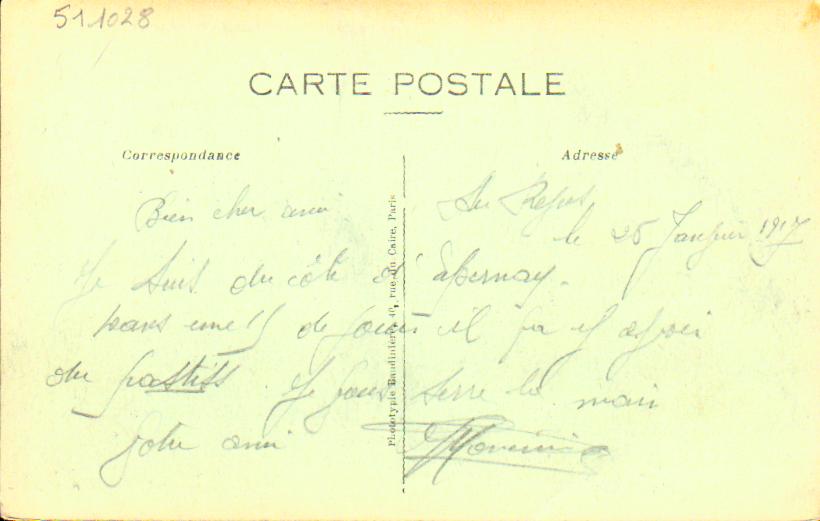 511028
CARTE POSTALE
Correspondance
Adresse
Phototypie Baudinière, 40, rue du Caire, Paris
Au Repos
le 26 Janvier 1917
Bien cher ami
Je suis du côté d'Epernay.
dans une 15 de jours il va y avoir
du pastiss. Je vous serre la main
Votre ami